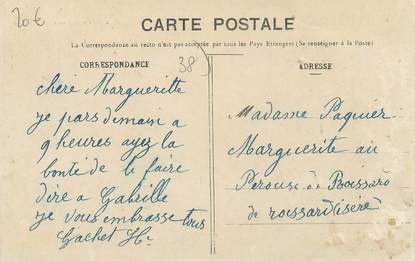 20€
CARTE POSTALE
La Correspondance au recto n'est pas acceptée par tous les Pays Etrangers (Se renseigner à la Poste)
CORRESPONDANCE
38
ADRESSE
chère Margueritte
je pars demain a
9 heures ayez la
bonté de le faire
dire a Gabrille
je vous embrasse tous
Gachet H.
Madame Paquier
Marguerite au
Perouse à
de (isère)